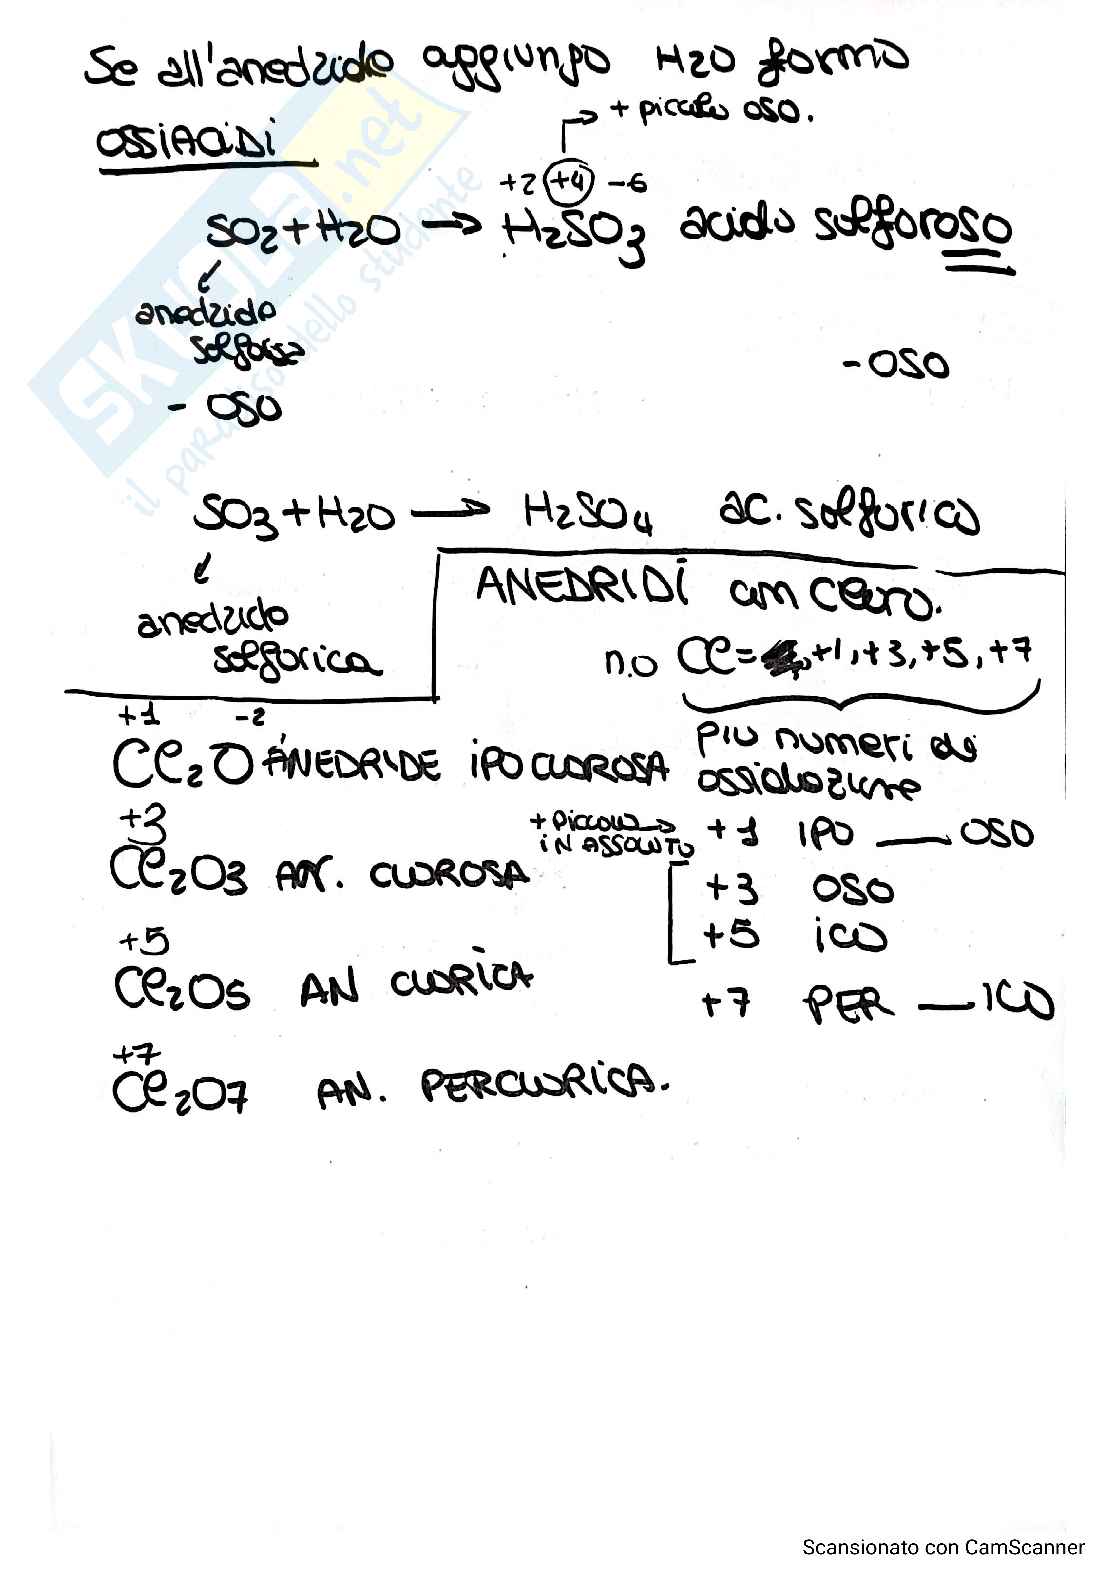 Se all'anedride aggiungo H2O formo
OSSIACIDI
+ piccolo OSO.
+2 +4 -6
SO2+H2O → H2SO3 acido solforoso
anedride
solforosa
- OSO
- OSO
SO3+H2O → H2SO4 ac. solforico
anedride
solforica
ANEDRIDI con Cloro.
n.o Cl= +1,+3,+5,+7
più numeri di
ossidazione
+1 -2
Cl2O ANEDRIDE IPOCLOROSA
+ piccolo →
IN ASSOLUTO
+1 IPO — OSO
+3
Cl2O3 AN. CLOROSA
+3 OSO
+5 ICO
+5
Cl2O5 AN CLORICA
+7 PER — ICO
+7
Cl2O7 AN. PERCLORICA.
SKUOLA.net
il paradiso dello studente
Scansionato con CamScanner